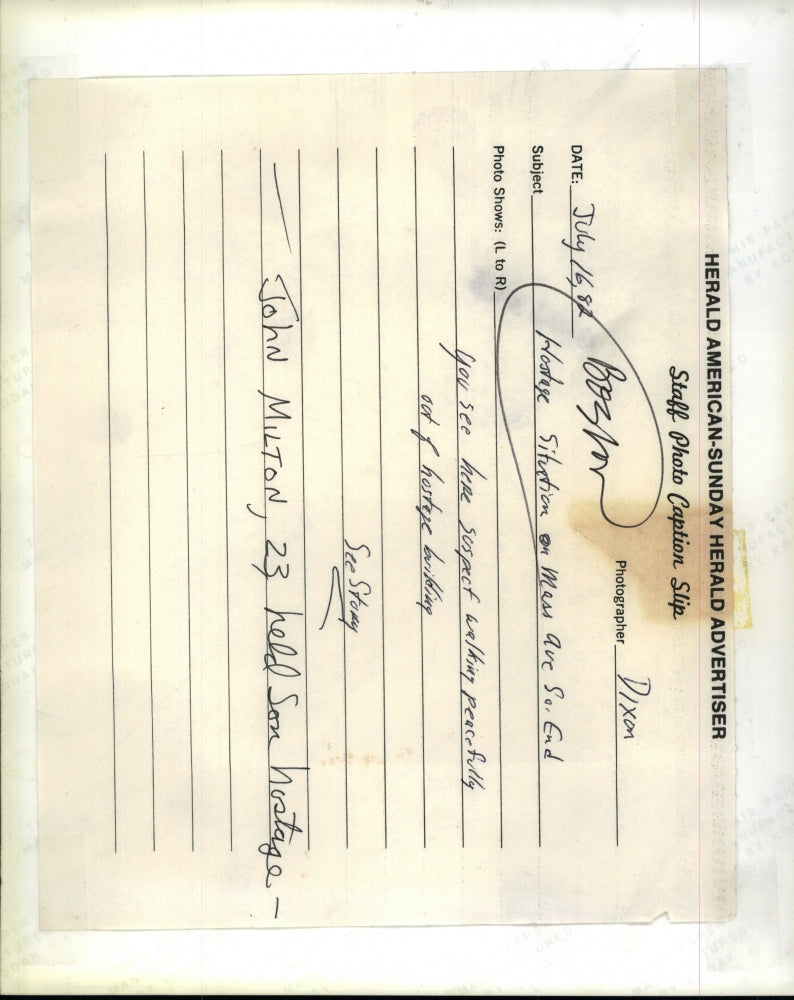 HERALD AMERICAN-SUNDAY HERALD ADVERTISER
Staff Photo Caption Slip
Photographer Dixon
Boston
DATE: July 16, 82
Subject Hostage Situation on Mass Ave So. End
Photo Shows: (L to R)
You see here suspect walking peacefully
out of hostage building
See Story
— John Milton, 23, held Son hostage —